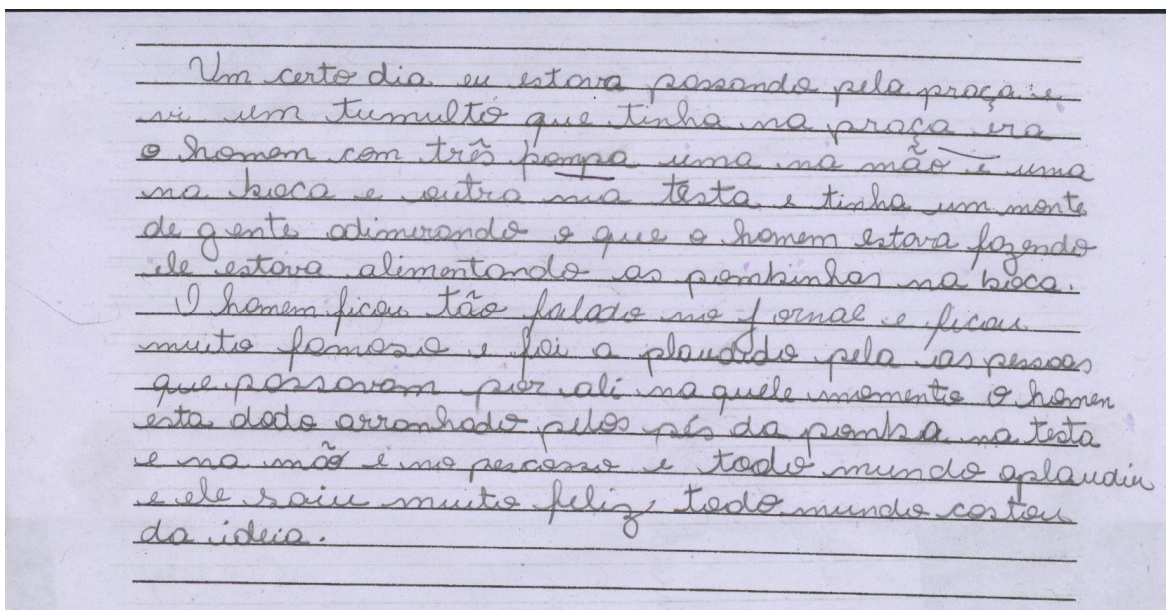 Um certo dia eu estava passando pela praça e
vi um tumulto que tinha na praça era
o homem com três pompa uma na mão e uma
na boca e outra na testa e tinha um monte
de gente adimirando o que o homem estava fazendo
ele estava alimentando as pombinhas na boca.
O homem ficou tão falado no jornal e ficou
muito famoso e foi a plaudido pela as pessoas
que passavam por ali na quele momento o homen
esta dodo arranhado pelos pés da pomba na testa
e na mão e no pescosso e todo mundo aplaudiu
e ele saiu muito feliz, todo mundo costou
da ideia.